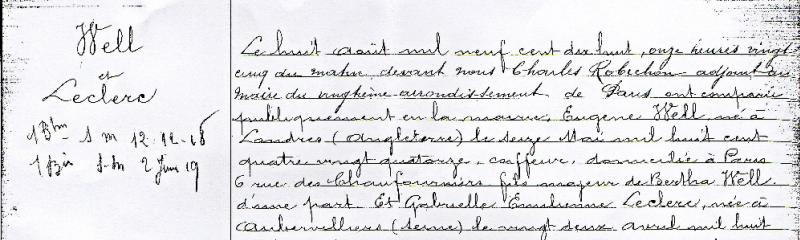 Well
et
Leclerc
1 Bin S m 12-12-18
1 Bin S-m 2 Juin 19
Le huit août mil neuf cent dix huit, onze heures vingt
cinq du matin, devant nous Charles Robichon adjoint au
maire du vingtième arrondissement de Paris ont comparu
publiquement en la mairie, Eugène Well, né à
Londres (Angleterre) le seize Mai mil huit cent
quatre vingt quatorze, coiffeur, domicilié à Paris
6 rue des Chaufourniers fils majeur de Bertha Well.
d'une part. Et Gabrielle Emilienne Leclerc, née à
Aubervilliers (Seine) le vingt deux avril mil huit